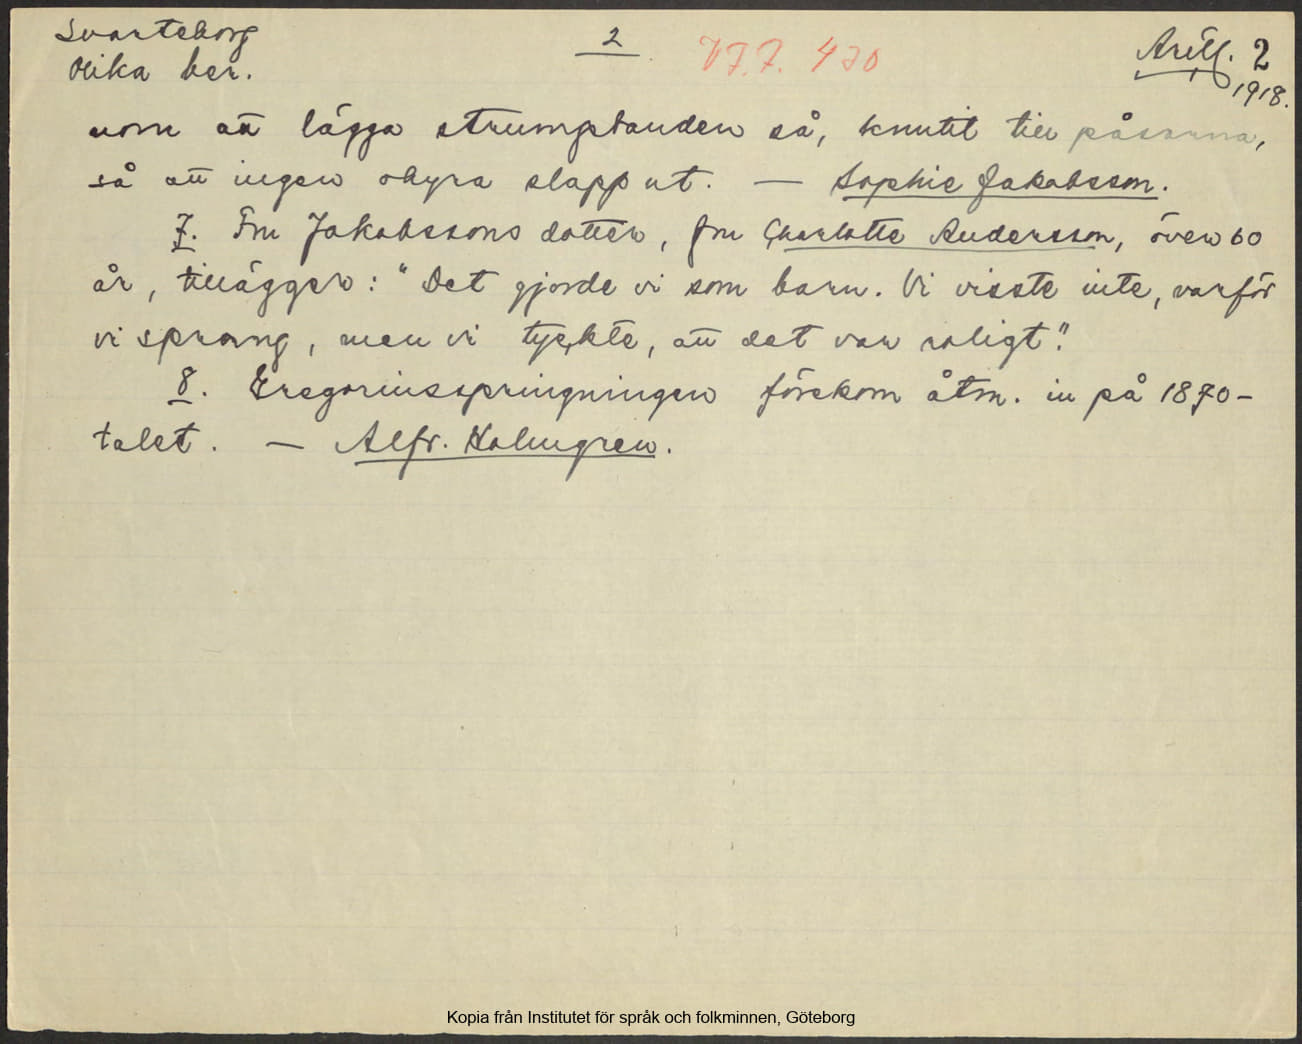 Svarteborg 2 VFF. 470 Arill. 2
Olika ber. 1918.
nom att lägga strumpbanden så, knutit till påsarna,
så att ingen ohyra slapp ut. — Sophie Jakobsson.
7. Fru Jakobssons dotter, fru Charlotte Andersson, över 60
år, tillägger: "Det gjorde vi som barn. Vi visste inte, varför
vi sprang, men vi tyckte, att det var roligt."
8. Gregoriusspringningen förekom åtm. in på 1870-
talet. — Alfr. Holmgren.
Kopia från Institutet för språk och folkminnen, Göteborg